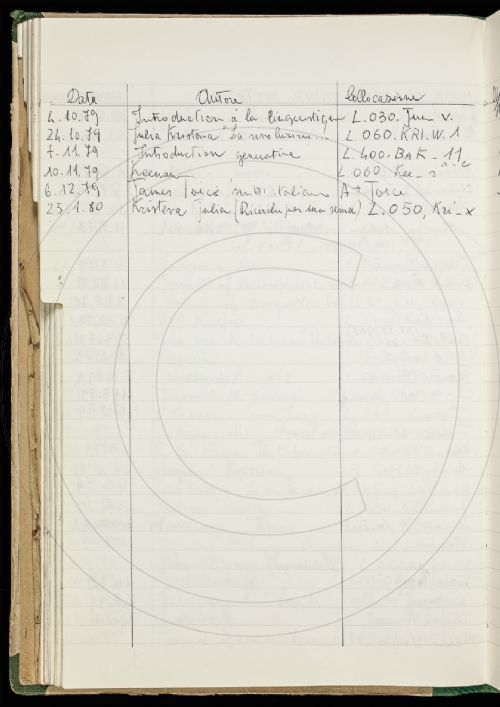 Data Autore Collocazione
4.10.79 Introduction à la linguistique L.030. V.
24.10.79 Julia Kristeva "La rivoluzione... L 060. KRI. W. 1
7.11.79 Introduction generative L.400. BAK - 11
10.11.79 Keenan L 060 Kee - 2
6.12.79 James Joice Joice
25.1.80 Kristeva Julia (Ricerche per una semei) L.050, Kri - x
C